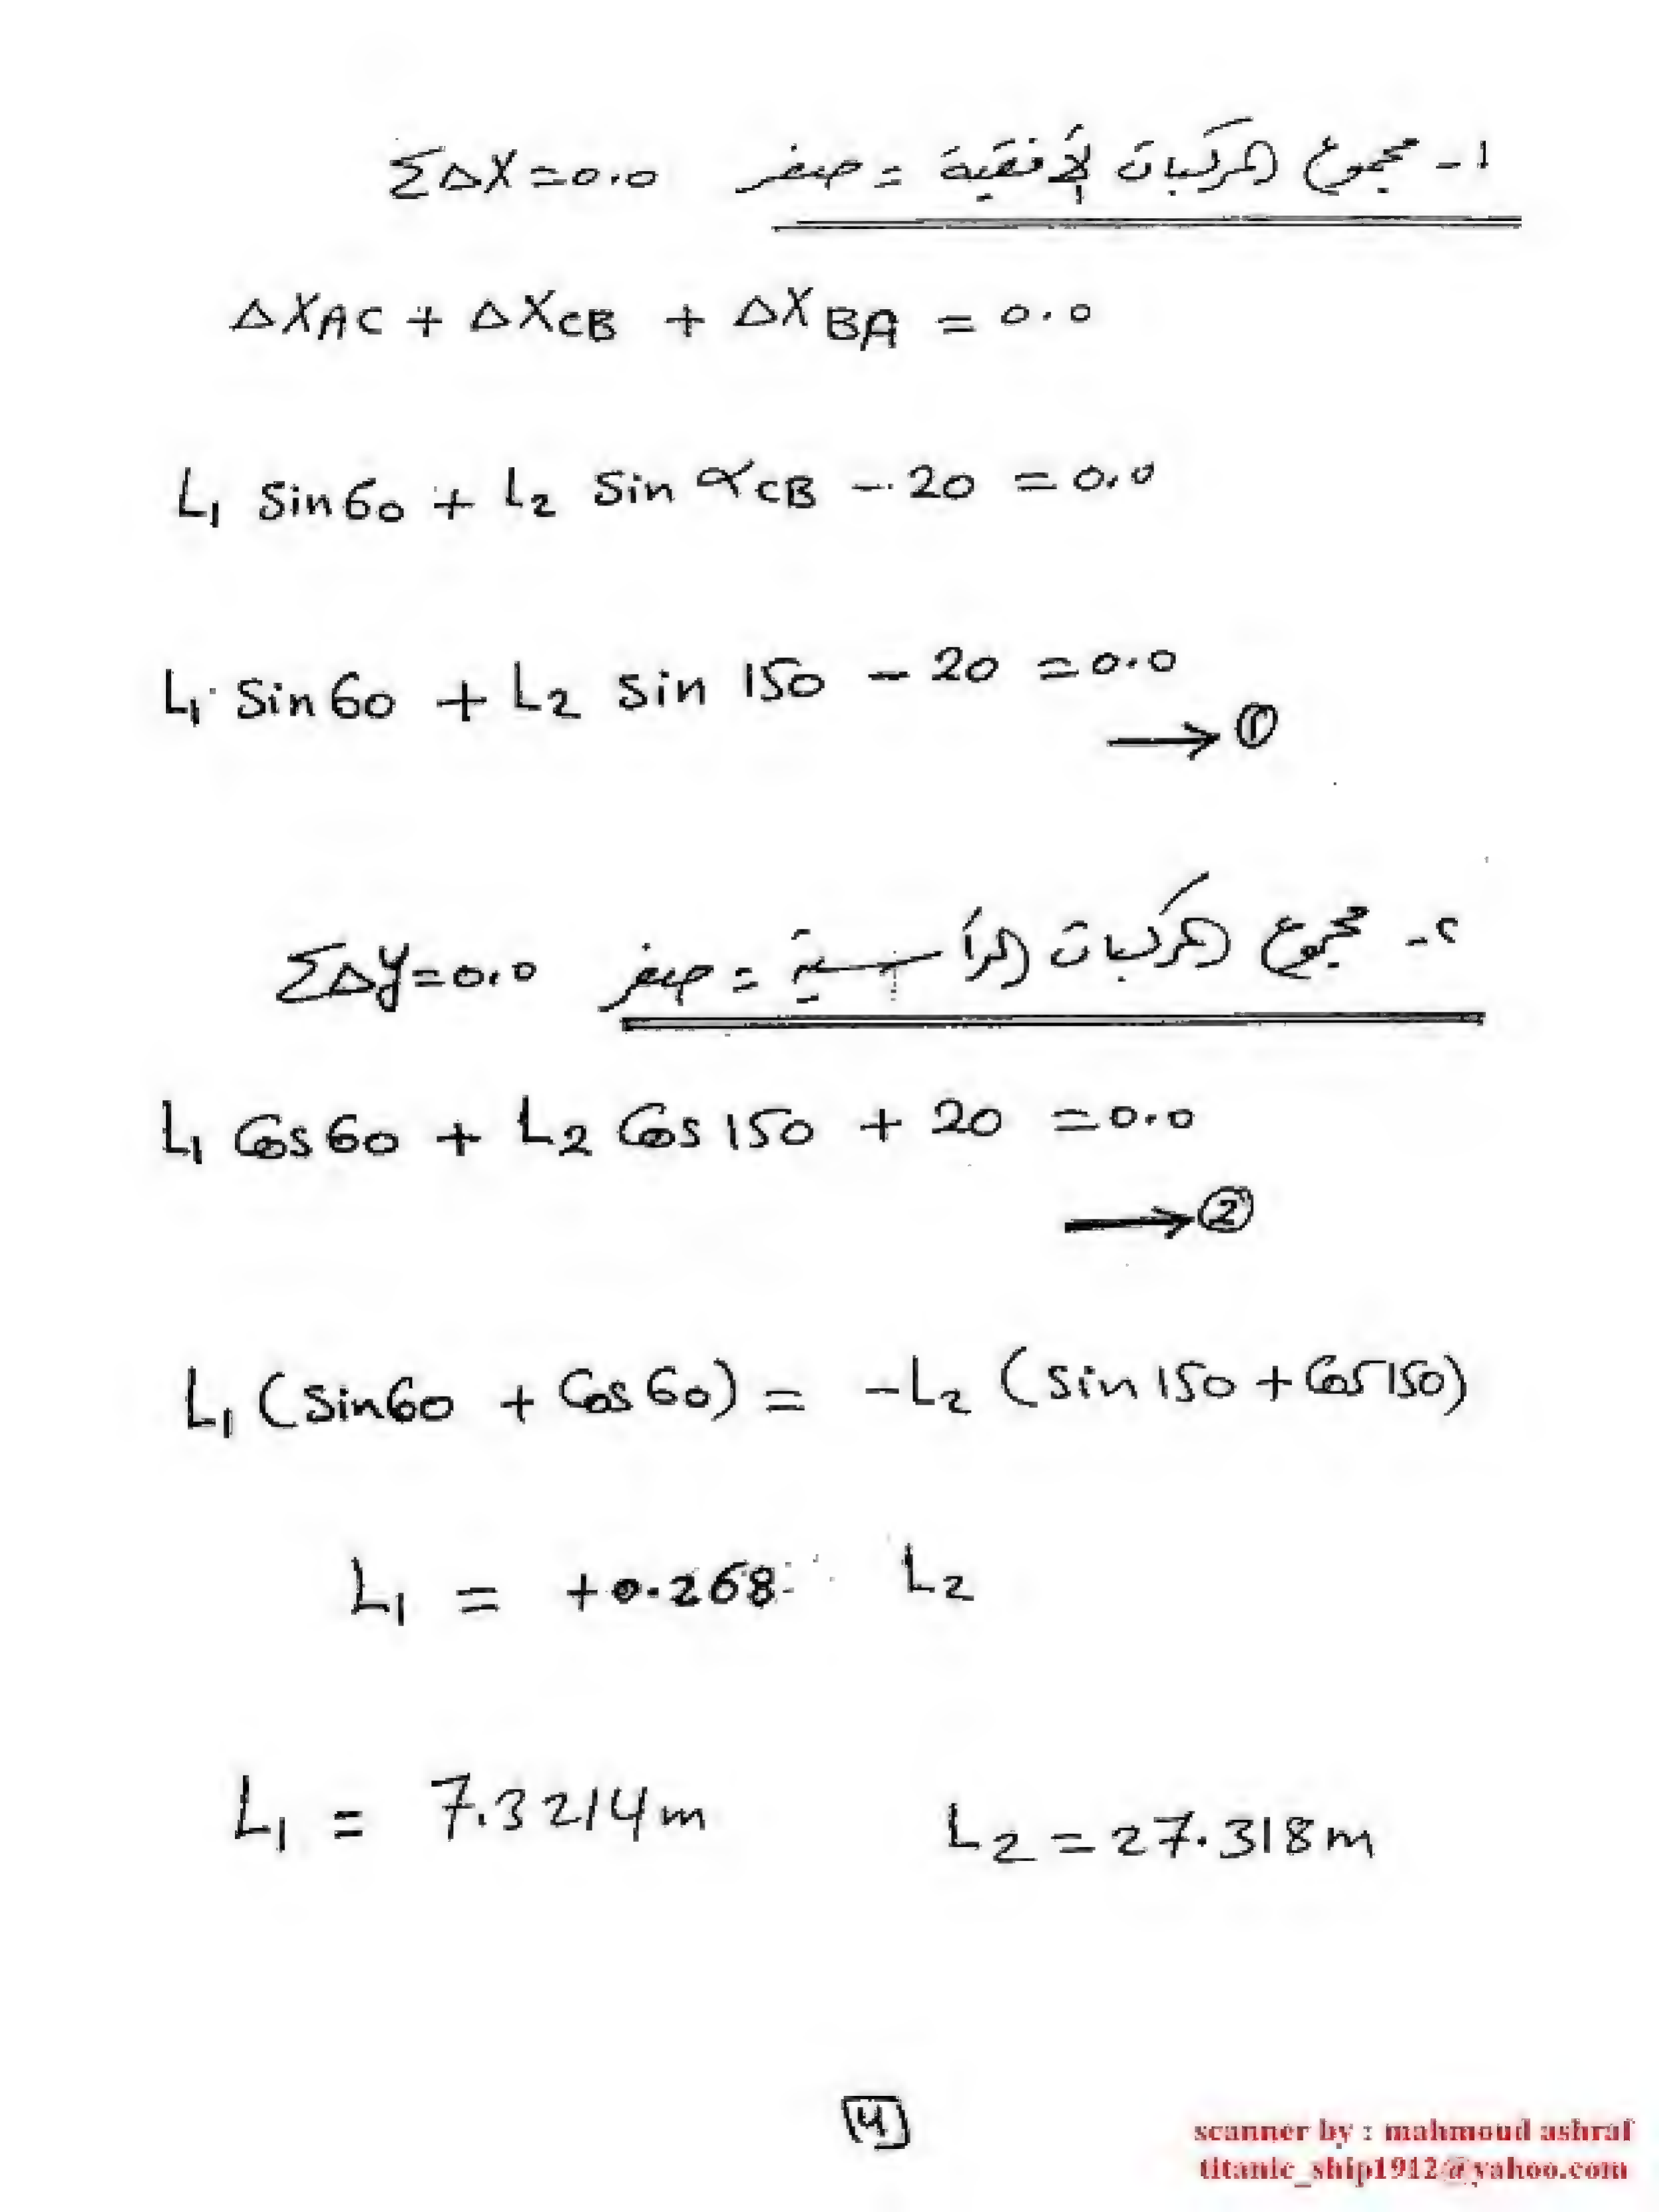 ١- مجموع المركبات الأفقية = صفر ΣΔX=0.0
ΔXAC + ΔXCB + ΔXBA = 0.0
L1 Sin60 + L2 Sin αCB - 20 = 0.0
L1 Sin60 + L2 sin 150 - 20 = 0.0
→ ①
٢- مجموع المركبات الرأسية = صفر ΣΔy=0.0
L1 Cos60 + L2 Cos150 + 20 = 0.0
→ ②
L1 (Sin60 + Cos60) = -L2 (sin150 + Cos150)
L1 = +0.268 L2
L1 = 7.3214m L2 = 27.318m
4
scanner by : mahmoud ashraf
titanic_ship1912@yahoo.com